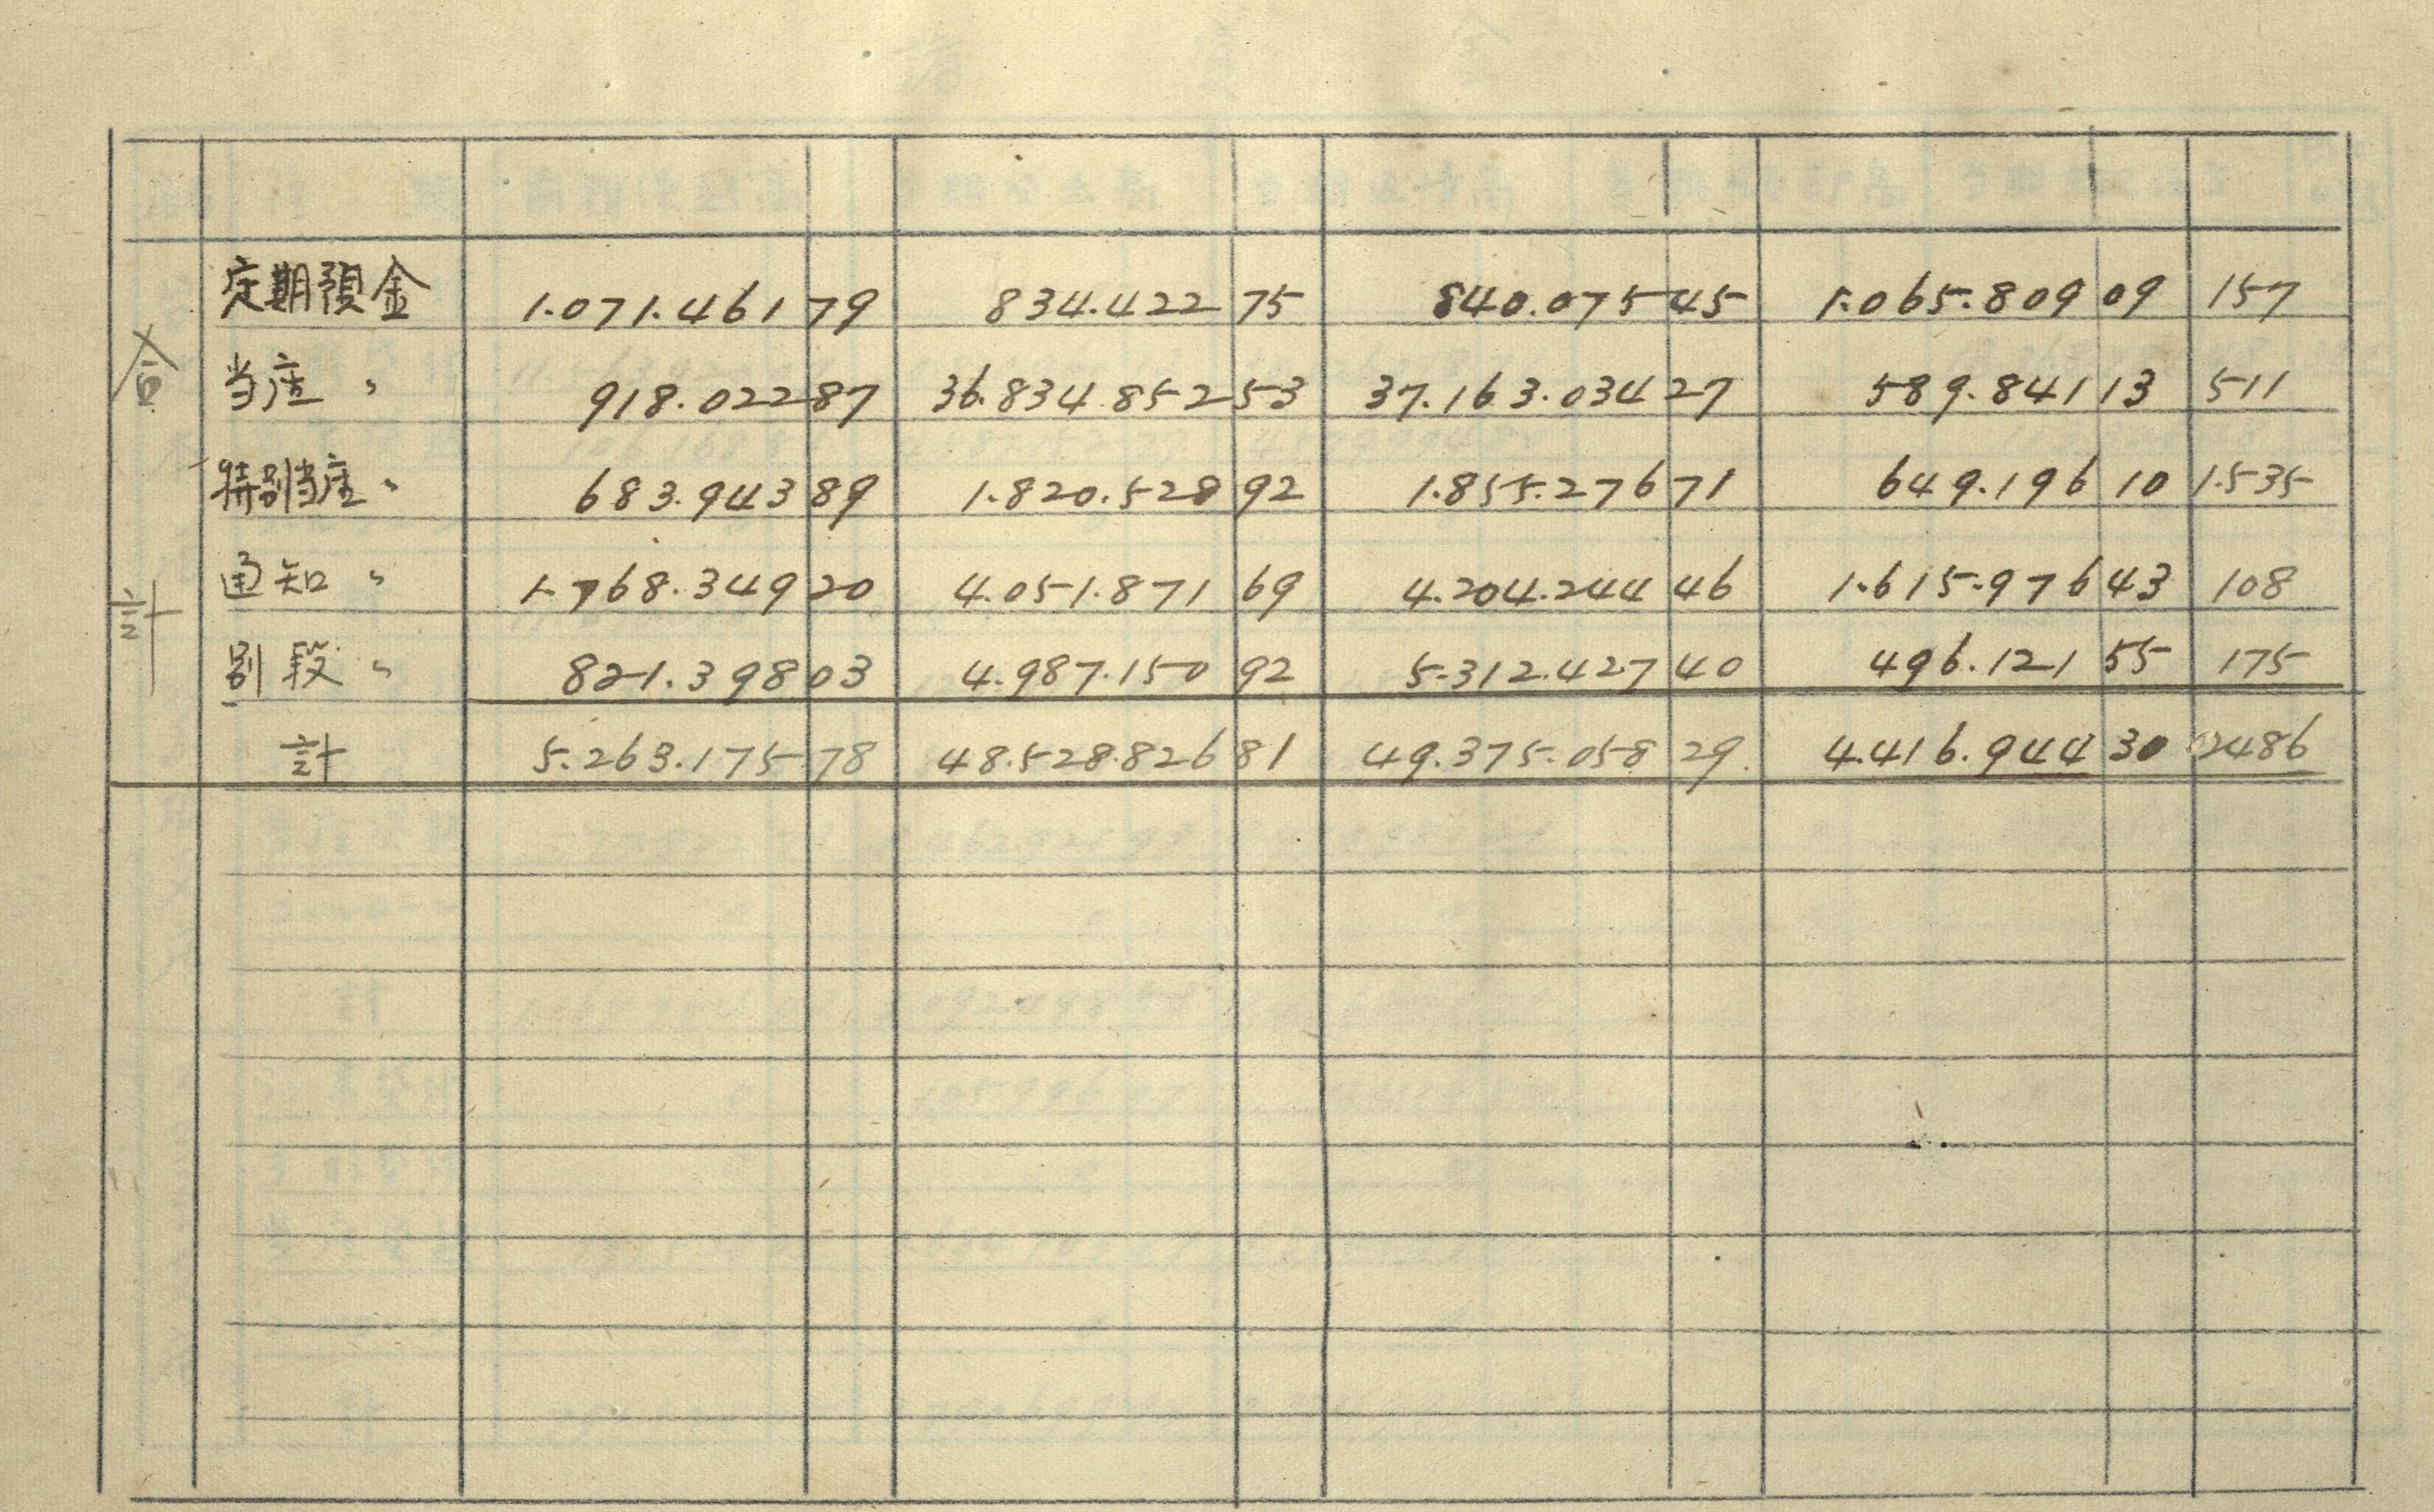 合計
定期預金 1.071.461 79 834.422 75 840.075 45 1.065.809 09 157
当座〃 918.022 87 36.834.852 53 37.163.034 27 589.841 13 511
特別当座〃 683.943 89 1.820.528 92 1.855.276 71 649.196 10 1.535
通知〃 1.768.349 20 4.051.871 69 4.204.244 46 1.615.976 43 108
別段〃 821.398 03 4.987.150 92 5.312.427 40 496.121 55 175
計 5.263.175 78 48.528.826 81 49.375.058 29 4.416.944 30 2486